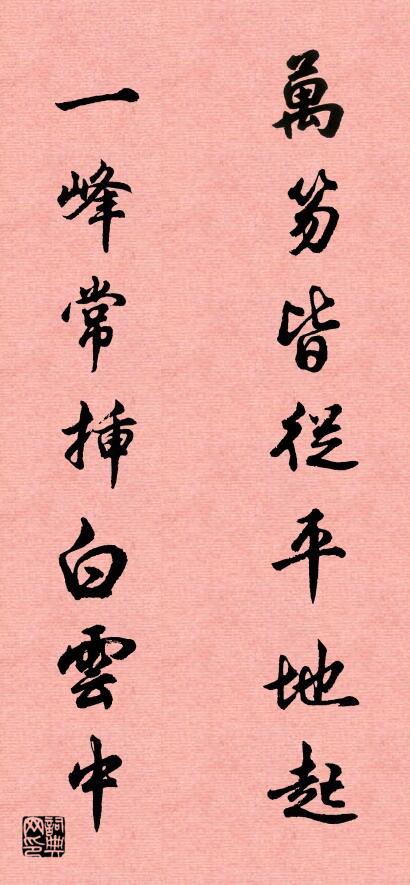 萬笏皆從平地起
一峰常插白雲中